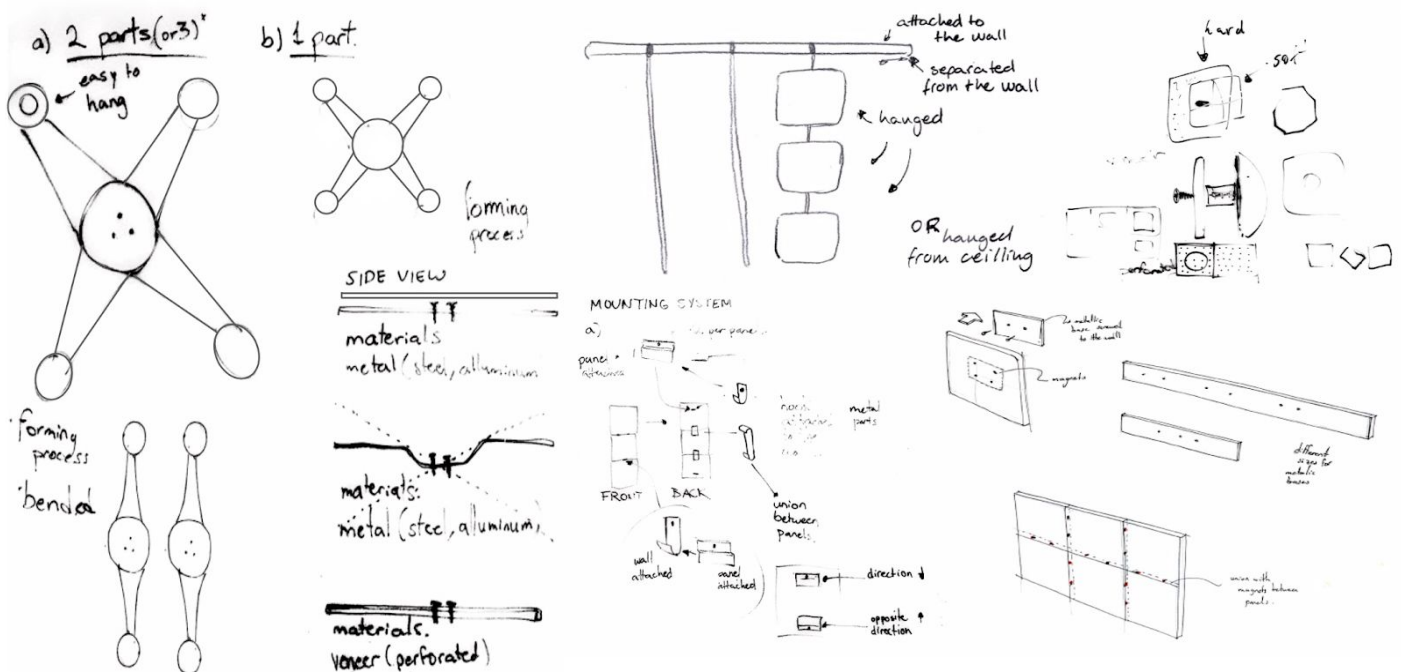 a) 2 parts (or 3)*
easy to
hang
b) 1 part.
forming
process
SIDE VIEW
materials
metal (steel, alluminum
materials:
metal (steel, alluminum)
materials.
veneer (perforated)
forming
process
bended
attached to
the wall
separated
from the wall
hanged
OR hanged
from ceilling
hard
MOUNTING SYSTEM
a)
per panel
panel
metal
parts
FRONT
BACK
union
between
panels.
wall
attached
panel
attached
direction
opposite
direction
metallic
base screwed
to the wall
magnets
different
sizes for
metallic
bases
union with
magnets between
panels.